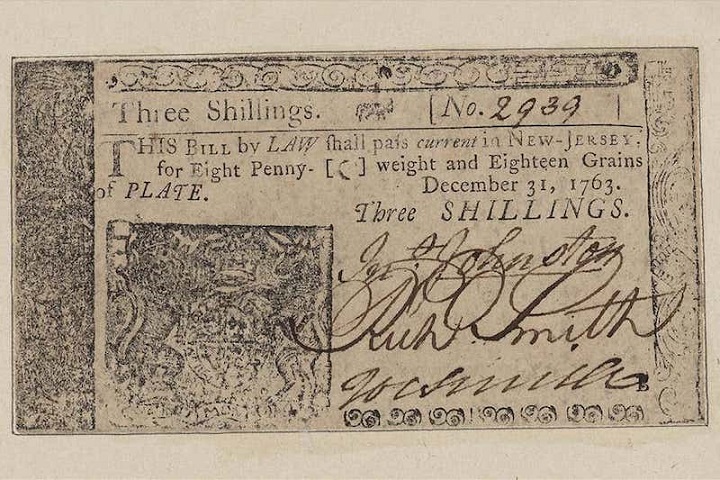 Three Shillings. [No. 2939]
THIS BILL by LAW shall pass current in NEW-JERSEY,
for Eight Penny- [ ( ] weight and Eighteen Grains
of PLATE. December 31, 1763.
Three SHILLINGS.
Jn.º Johnston
Rich.d Smith
B